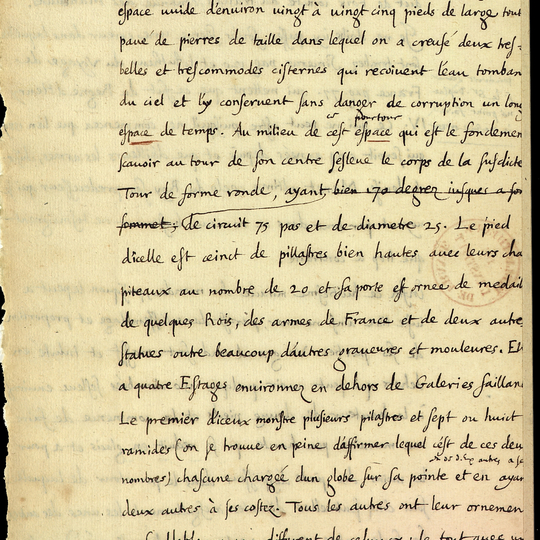 espace vuide d'environ vingt à vingt cinq pieds de large tout
pavé de pierres de taille dans lequel on a creusé deux tres-
belles et trescommodes cisternes qui recoivent l'eau tomban
du ciel et l'y conservent sans danger de corruption un long
espace de temps. Au milieu de cest espace pourtour qui est le fondemen
scavoir au tour de son centre s'esleve le corps de la susdicte
Tour de forme ronde, ayant bien 170 degrez iusques a son
sommet; de circuit 75 pas et de diametre 25. Le pied
d'icelle est ceinct de pillastres bien hautes avec leurs cha
piteaux au nombre de 20 et sa porte est ornee de medail
de quelques Rois, des armes de France et de deux autre
statues outre beaucoup d'autres graveures et mouleures. El
a quatre Estages environnez en dehors de Galeries saillan
Le premier d'iceux monstre plusieurs pilastres et sept ou huict
ramides (on se trouve en peine d'affirmer lequel c'est de ces deu
nombres) chascune chargée d'un globe sur sa pointe et en ayan
deux autres à ses costez. Tous les autres ont leur ornemen